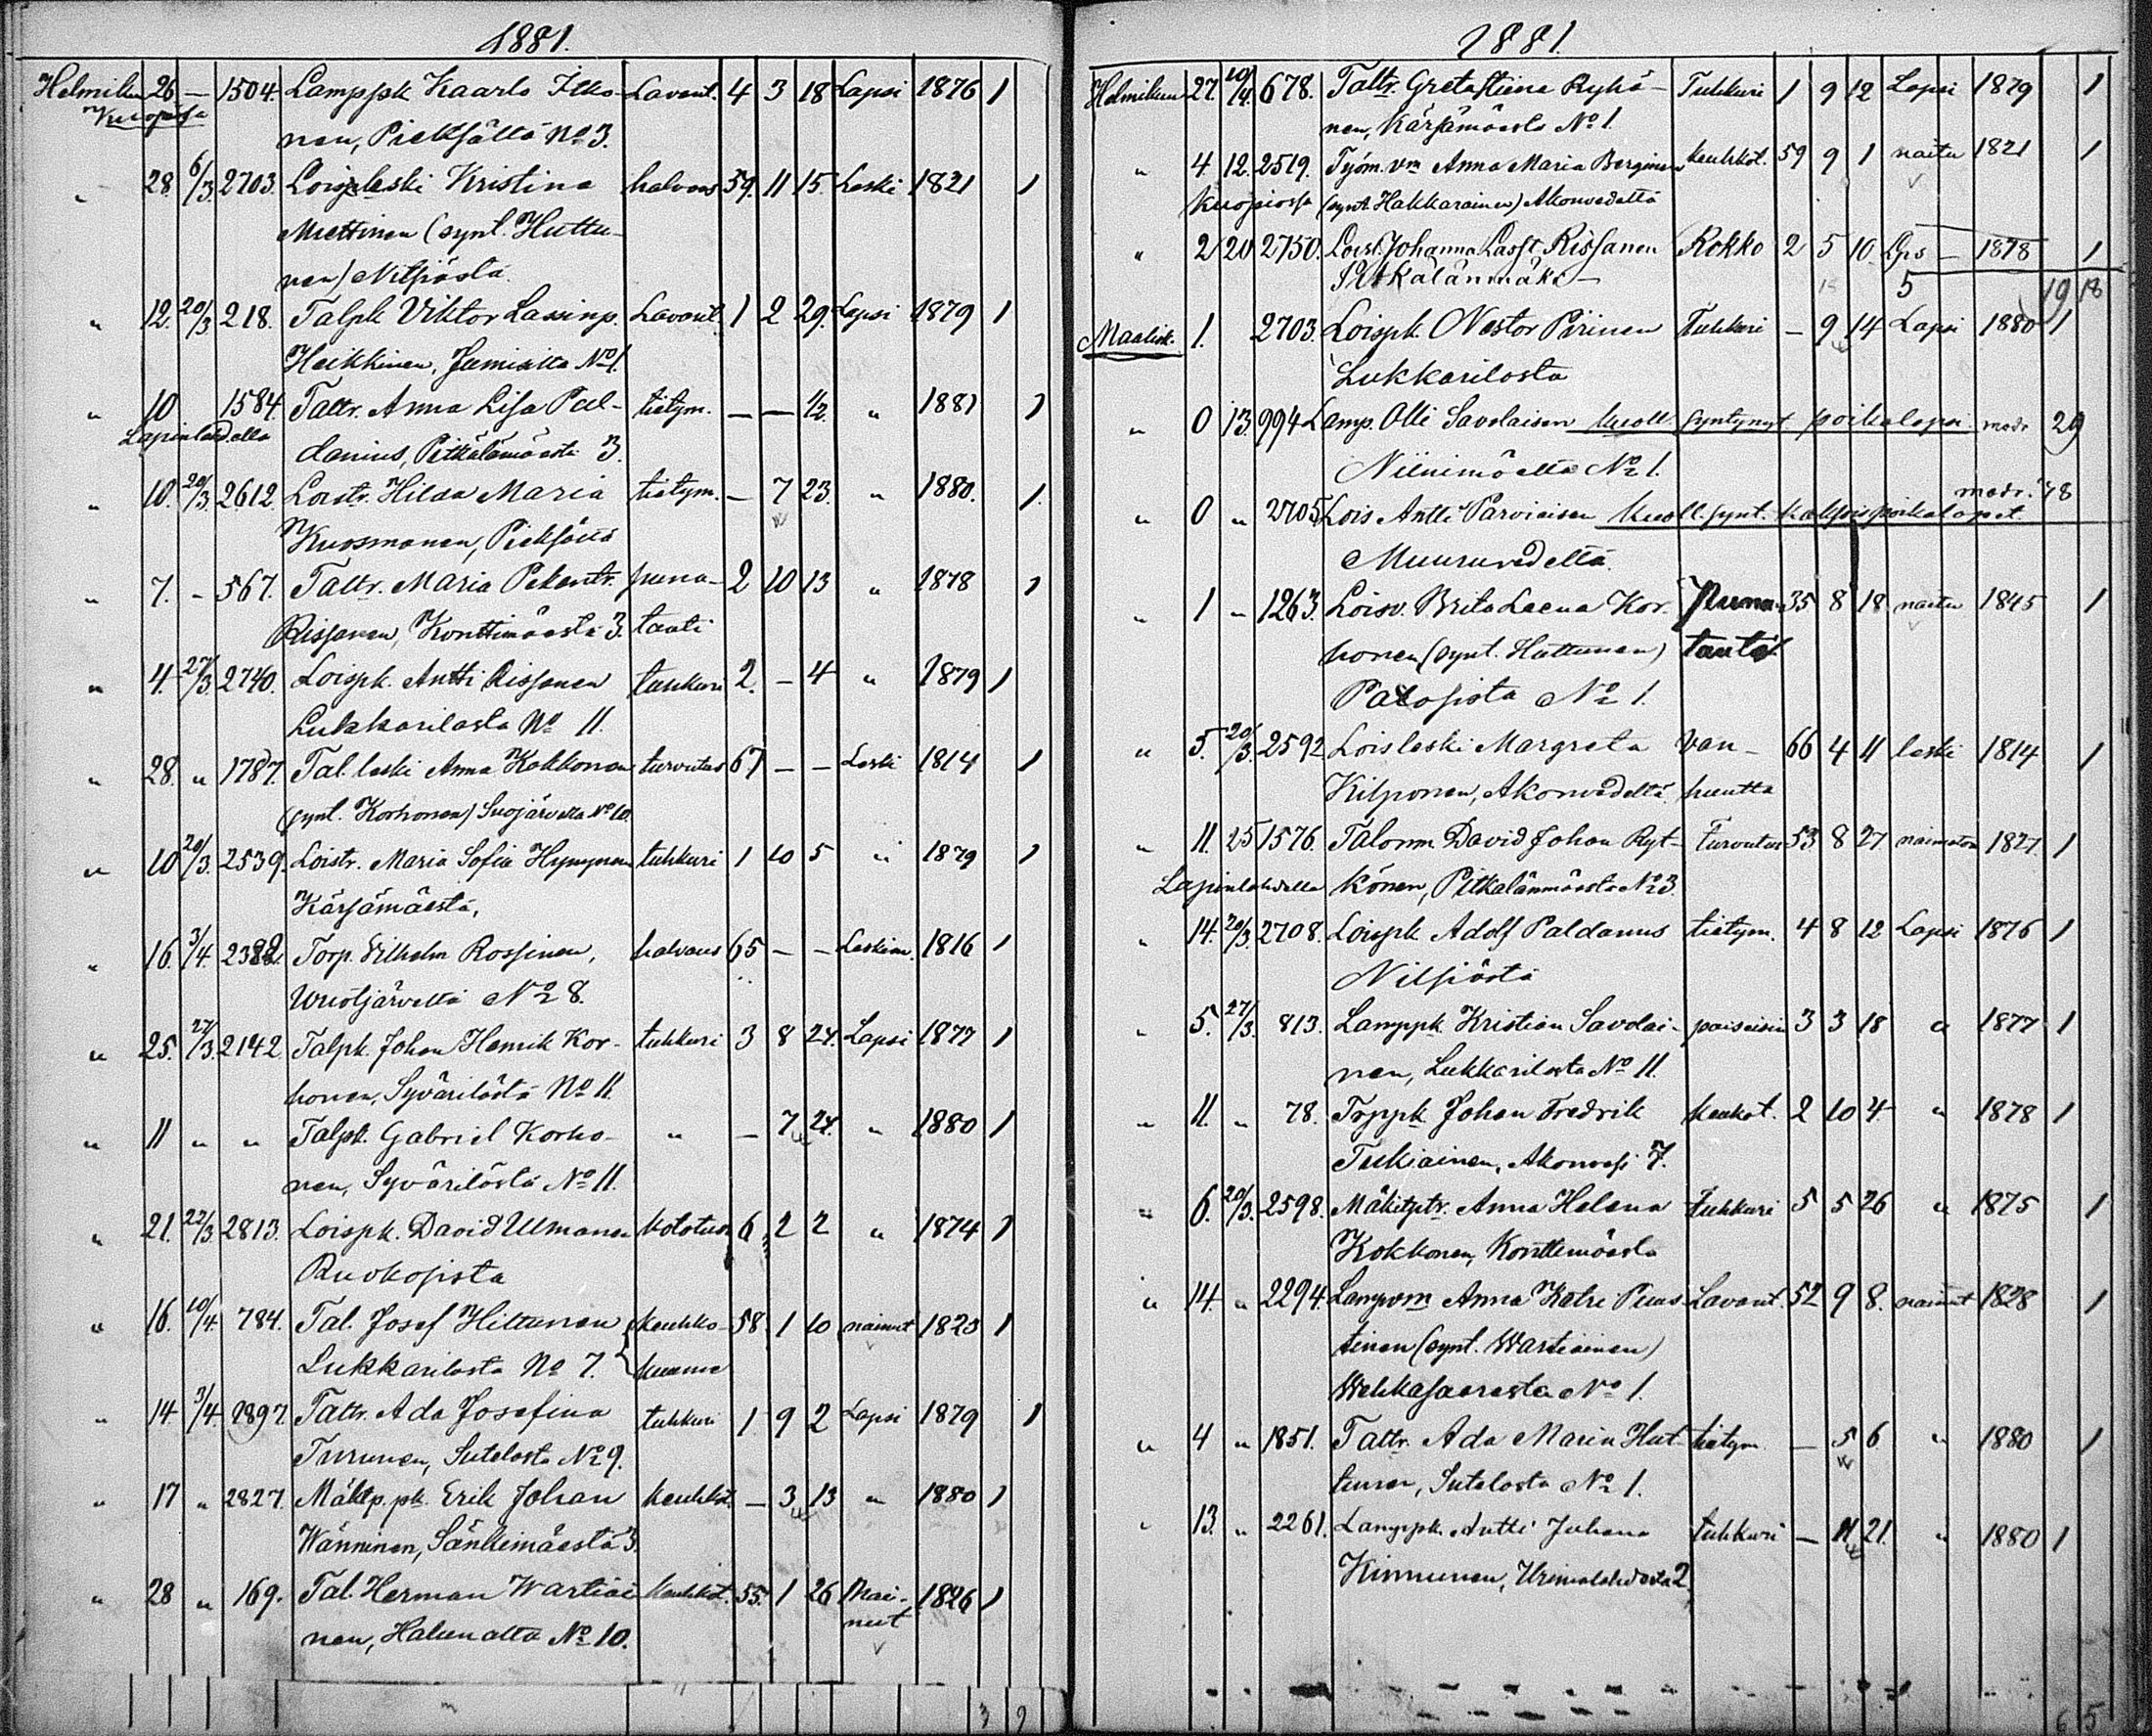 1881.
Helmikuu 26 — 1504. Lamppk Kaarlo Ilko- Lavant. 4 3 18 Lapsi 1876 1
nen, Pieksältä No 3.
" 28. 6/3. 2703. Loisleski Kristina halvaus 59. 11 15. Leski 1821 1
Miettinen (synt. Huttu-
nen) Nilsiästä.
" 12. 20/3 218. Talpk Viktor Lassinp. Lavant. 1 2 29. Lapsi 1879 1
Heikkinen, Juminilta No 1.
" 10 1584. Taltr. Anna Lisa Pal- tietym. — — 1/2. " 1881 1
Lapinlahdella danius, Pitkälämäestä 3.
" 10. 20/3. 2612. Loistr. Hilda Maria tietym. — 7 23. " 1880. 1.
Kuosmanen, Pieksästä
" 7. - 567. Taltr. Maria Pekantr. puna- 2 10 13 " 1878 1
Rissanen, Konttimäestä 3. tauti
" 4. 27/3. 2740. Loispk. Antti Rissanen tuhkuri 2. — 4 " 1879 1
Lukkarilasta No 11.
" 28. " 1787. Tal. leski Anna Kokkonen turvutus 67 — — Leski 1814 1
(synt. Korhonen) Suojärveltä No 10.
" 10 20/3. 2539. Loistr. Maria Sofia Hyvynen tuhkuri 1 10 5 " 1879 1
Kärsämäestä,
" 16. 3/4. 2382. Torp. Vilhelm Rossinen, halvaus 65 — — Leskim. 1816 1
Wuotjärveltä No 8.
" 25. 27/3. 2142 Talpk. Johan Henrik Kor- tuhkuri 3 8 24. Lapsi 1877 1
honen, Syvärilästä No 11.
" 11 " " Talpk. Gabriel Korho- " — 7 24. " 1880 1
nen, Syvärilästä No 11.
" 21. 22/3 2813. Loispk. David Ulmanen kolotus 6 2 2 " 1874 1
Ruokosista
" 16. 10/4. 784. Tal. Josef Hiltunen keuhko- 58. 1 10 nainut 1823 1
Lukkarilasta No 7. kuume
" 14 3/4. 2897. Taltr. Ada Josefina tuhkuri 1. 9 2 Lapsi 1879 1
Turunen, Sutelasta No 9.
" 17 " 2827. Mäkitp.pk. Erik Johan keuhkot. — 3 13 " 1880 1
Wänninen, Sänkimäestä 3.
" 28 " 169. Tal. Herman Wartiai- keuhkot. 55. 1 26 Nai- 1826 1
nen, Halunalta No 10. nut
3 9
1881.
Helmikuu 27. 10/4. 678. Taltr. Greta Stiina Ryhä- Tuhkuri 1 9 12 Lapsi 1879 1
nen, Kärsämäestä No 1.
" 4 12. 2519. Työm. vm Anna Maria Berginen keuhkot. 59 9 1 naitu 1821 1
Kuopiossa (synt. Hakkarainen) Akonvedeltä
" 2 20 2750. Loist. Johanna Lasst. Rissanen Rokko 2 5 10. Lps — 1878 1
Pitkälänmäki —
5 19 18
Maalisk. 1. 2703. Loispk. Nestor Piirinen Tuhkuri — 9 14 Lapsi 1880 1
Lukkarilasta
" 0 13. 994 Lamp. Olli Savolaisen kuoll. syntynyt poikalapsi modr 29
Niinimäeltä No 1.
" 0 " 2705 Lois Antti Parviaisen kuoll. synt. kaksoispoikalapset. modr. 48
Muuruvedeltä.
" 1 - 1263. Loisv. Brita Leena Kor- Puna- 35 8 18 naitu 1845 1
honen (synt. Huttunen) tauti
Palosista No 1.
" 5. 20/3. 2592 Loisleski Margreta van- 66 4 11 leski 1814 1
Kilponen, Akonvedeltä huutta
" 11. 25 1576. Talonm. David Johan Ryt- Turvutus 53 8 27 naimaton 1827. 1
Lapinlahdella könen, Pitkälänmäestä No 3.
" 14. 20/3 2708. Loispk Adolf Paldanius tietym. 4 8 12 Lapsi 1876 1
Nilsiästä
" 5. 27/3. 813. Lamppk. Kristian Savolai- paiseisiin 3 3 18 " 1877 1
nen, Lukkarilasta No 11.
" 11. " 78. Torppk Johan Fredrik keuhkot. 2 10 4 " 1878 1
Tukiainen, Akonvesi 7.
" 6. 20/3. 2598. Mäkitptr. Anna Helena Tuhkuri 5 5 26 " 1875 1
Kokkonen, Konttimäestä
" 14. " 2294. Lampvm Anna Katri Puus- Lavant. 52 9 8. nainut 1828 1
tinen (synt. Wartiainen)
Wehkasaaresta No 1.
" 4 " 1851. Taltr. Ada Maria Hut- tietym. — 5 6 " 1880 1
tunen, Sutelasta No 1.
" 13. " 2261. Lamppk. Antti Juhana tuhkuri — 11 21. " 1880 1
Kinnunen, Urimolahdesta 2
6 5